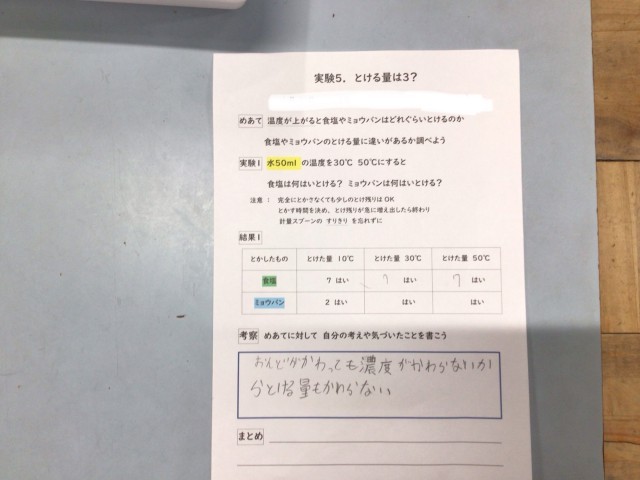 実験5．とける量は3？
めあて 温度が上がると食塩やミョウバンはどれぐらいとけるのか
食塩やミョウバンのとける量に違いがあるか調べよう
実験1 水50mlの温度を30℃ 50℃にすると
食塩は何はいとける？ ミョウバンは何はいとける？
注意 ： 完全にとかさなくても少しのとけ残りはOK
とかす時間を決め、とけ残りが急に増え出したら終わり
計量スプーンの すりきり を忘れずに
結果1
とかしたもの とけた量 10℃ とけた量 30℃ とけた量 50℃
食塩 7 はい 7 はい 7 はい
ミョウバン 2 はい はい はい
考察 めあてに対して 自分の考えや気づいたことを書こう
おんどがかわっても濃度がかわらないか
らとける量もかわらない
まとめ